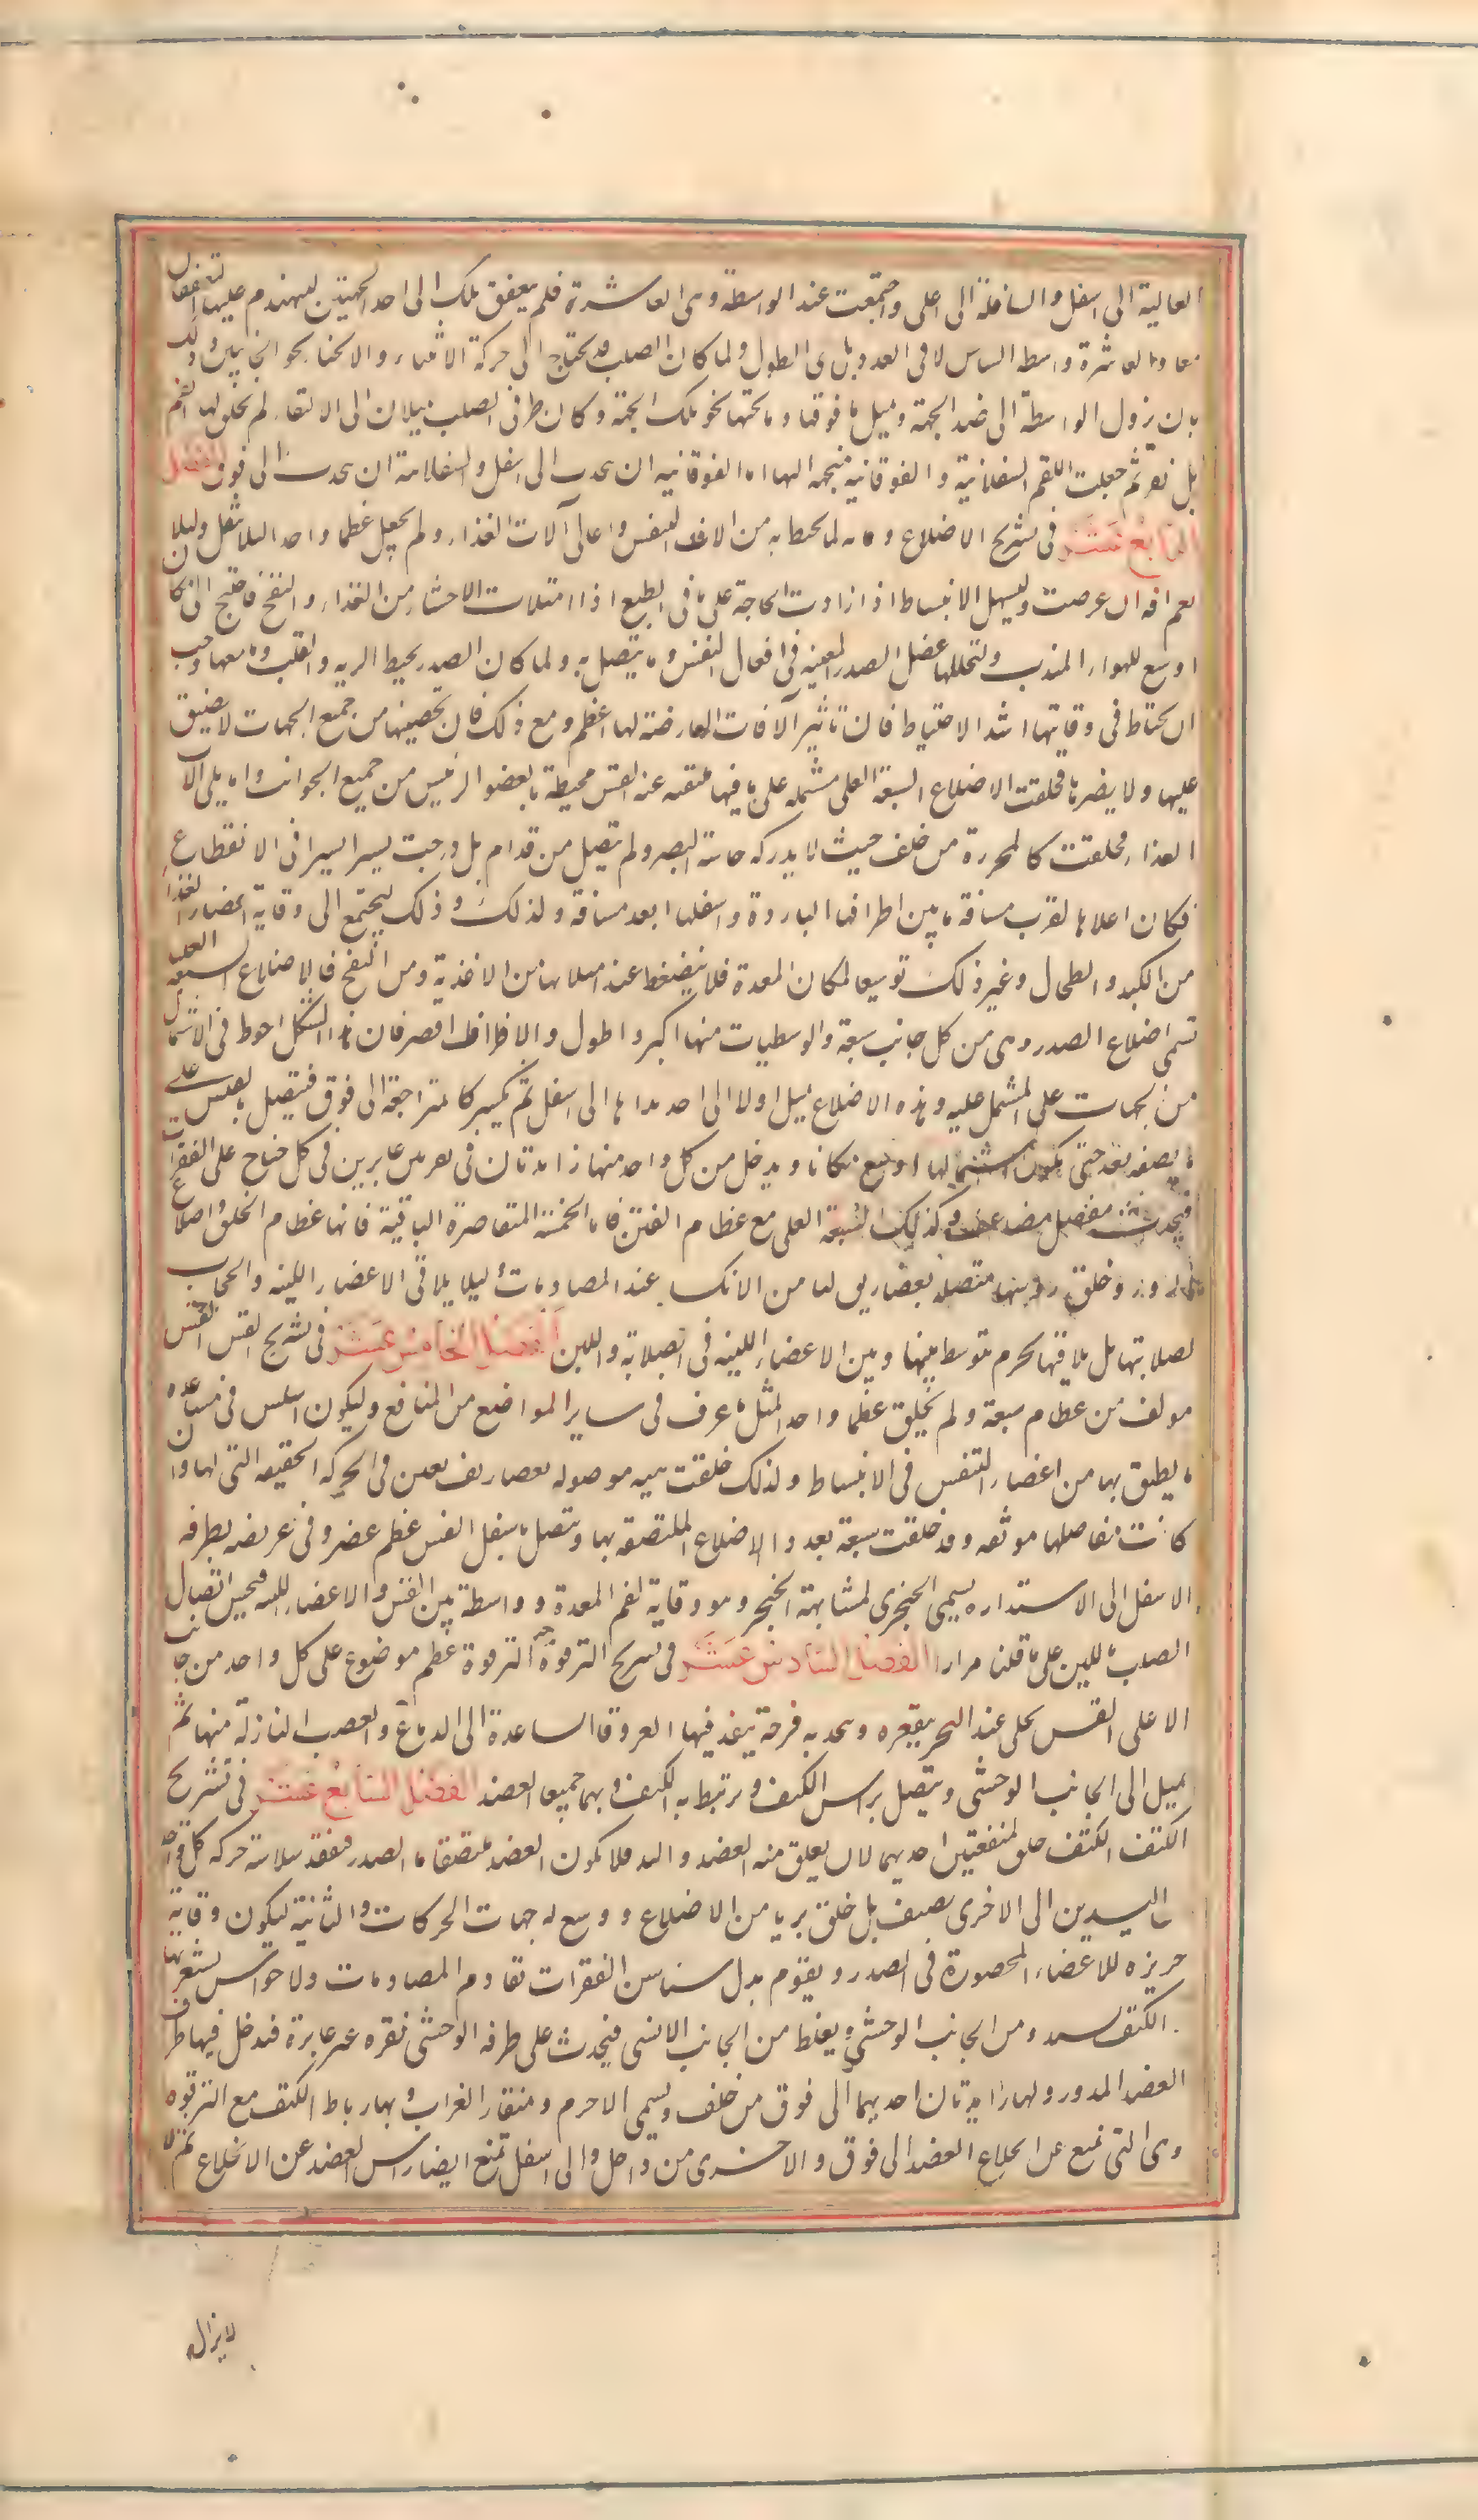 العالية الى اسفل والسافلة الى اعلى واجتمعت عند الواسطة وهى العاشرة فلم يتعفق تلك الى احد الجهتين ليتهندم عليها التعقفان
معا وما العاشرة واسطة السناسن لا فى العدد بل فى الطول ولما كان الصلب قد يحتاج الى حركة الانثناء والانحناء نحو الجانبين وذلك
بان يزول الواسطة الى ضد الجهة وتميل ما فوقها وما تحتها نحو تلك الجهة وكان طرفى الصلب يميلان الى الالتقاء لم يخلق لها لقم
بل نقر ثم جعلت اللقم السفلانية والفوقانية متجهة اليها اما الفوقانية ان يحدب الى اسفل والسفلانية ان يحدب الى فوق الفصل
الرابع عشر فى تشريح الاضلاع وقاية لما يحيط به من الات التنفس واعالى آلات الغذاء ولم يجعل عظما واحدا لئلا يثقل ولئلا
يعم افة ان عرضت وليسهل الانبساط اذا ازدادت الحاجة على ما فى الطبع اذا امتلات الاحشاء من الغذاء والنفخ فاحتيج الى مكان
اوسع للهواء المنجذب ولتخللها عضل الصدر المعينة فى افعال التنفس وما يتصل به ولما كان الصدر يحيط الرية والقلب وما معهما وجب
ان يحتاط فى وقايتها اشد الاحتياط فان تاثير الافات العارضة لها اعظم ومع ذلك فان تحصينها من جميع الجهات لا يضيق
عليها ولا يضر بها فخلقت الاضلاع السبعة العلى مشتملة على ما فيها ملتقية عند القس محيطة بالعضو الرئيس من جميع الجوانب واما يلى الات
الغذاء فخلقت كالمحرزة من خلف حيث لا يدركه حاسة البصر ولم يتصل من قدام بل درجت يسيرا يسيرا فى الانقطاع
فكان اعلاها لقرب مسافة ما بين اطرافها البارزة واسفلها ابعد مسافة ولذلك وذلك ليجتمع الى وقاية اعضاء الغذاء
من الكبد والطحال وغير ذلك توسيعا لمكان المعدة فلا ينضغط عند امتلائها من الاغذية ومن النفخ فالاضلاع السبعة العلى
تسمى اضلاع الصدر وهى من كل جانب سبعة والوسطيات منها اكبر واطول والاطراف اقصر فان هذا الشكل احوط فى الاشتمال
من الجهات على المشتمل عليه وهذه الاضلاع تميل اولا الى احدابها الى اسفل ثم تكر كالمتراجعة الى فوق فيتصل بالقس على
ما يصفه بعد حتى يكون اشتمالها اوسع مكانا ويدخل من كل واحد منها زائدتان فى نقرتين غايرتين فى كل جناح على الفقرات
فيحدث مفصل مضاعف وكذلك السبعة العلى مع عظام القس فاما الخمسة المتقاصرة الباقية فانها عظام الخلف واضلاع
الزور وخلق رؤسها متصلة بغضاريف لتامن الانكسار عند المصادمات لئلا يلاقى الاعضاء اللينة والحجاب
بصلابتها بل يلاقيها بجرم متوسط بينها وبين الاعضاء اللينة فى الصلابة واللين الفصل الخامس عشر فى تشريح القس القس
مولف من عظام سبعة ولم يخلق عظما واحدا لمثل ما عرف فى ساير المواضع من المنافع وليكون اسلس فى مساعدة
ما يطيق بها من اعضاء التنفس فى الانبساط ولذلك خلقت هشة موصولة بغضاريف تعين فى الحركة الخفيفة التى لها وان
كانت مفاصلها موثقة وقد خلقت سبعة بعدد الاضلاع الملتصقة بها ويتصل باسفل القس عظم غضروفى عريض طرفه
الاسفل الى الاستدارة يسمى الخنجرى لمشابهته الخنجر وهو وقاية لفم المعدة وواسطة بين القس والاعضاء اللينة فيحسن اتصال
الصلب باللين على ما قلنا مرارا الفصل السادس عشر فى تشريح الترقوة الترقوة عظم موضوع على كل واحد من جانبى
الاعلى القس يخلى عند النحر بتقعره وتحدبه فرجة ينفذ فيها العروق الصاعدة الى الدماغ والعصب النازلة منها ثم
يميل الى الجانب الوحشى ويتصل براس الكتف ويرتبط به الكتف وبهما جميعا العضد الفصل السابع عشر فى تشريح
الكتف الكتف خلق لمنفعتين احديهما لان يعلق منه العضد واليد فلا يكون العضد ملتصقا بالصدر فيفقد سلاسة حركة كل واحدة
من اليدين الى الاخرى يضيق بل خلق بريا من الاضلاع ووسع له جهات الحركات والثانية ليكون وقاية
حريزة للاعضاء المحصورة فى الصدر ويقوم بدل سناسن الفقرات تقاوم المصادمات ولا حواس يشعر بها
الكتف ومن الجانب الوحشى ويغلظ من الجانب الانسى فيحدث على طرفه الوحشى نقرة غير غايرة فتدخل فيها طرف
العضد المدور ولها زايدتان احديهما الى فوق من خلف ويسمى الاخرم ومنقار الغراب وبها رباط الكتف مع الترقوة
وهى التى تمنع عن انخلاع العضد الى فوق والاخرى من داخل والى اسفل تمنع ايضا راس العضد عن الانخلاع ثم لا
لا يزال